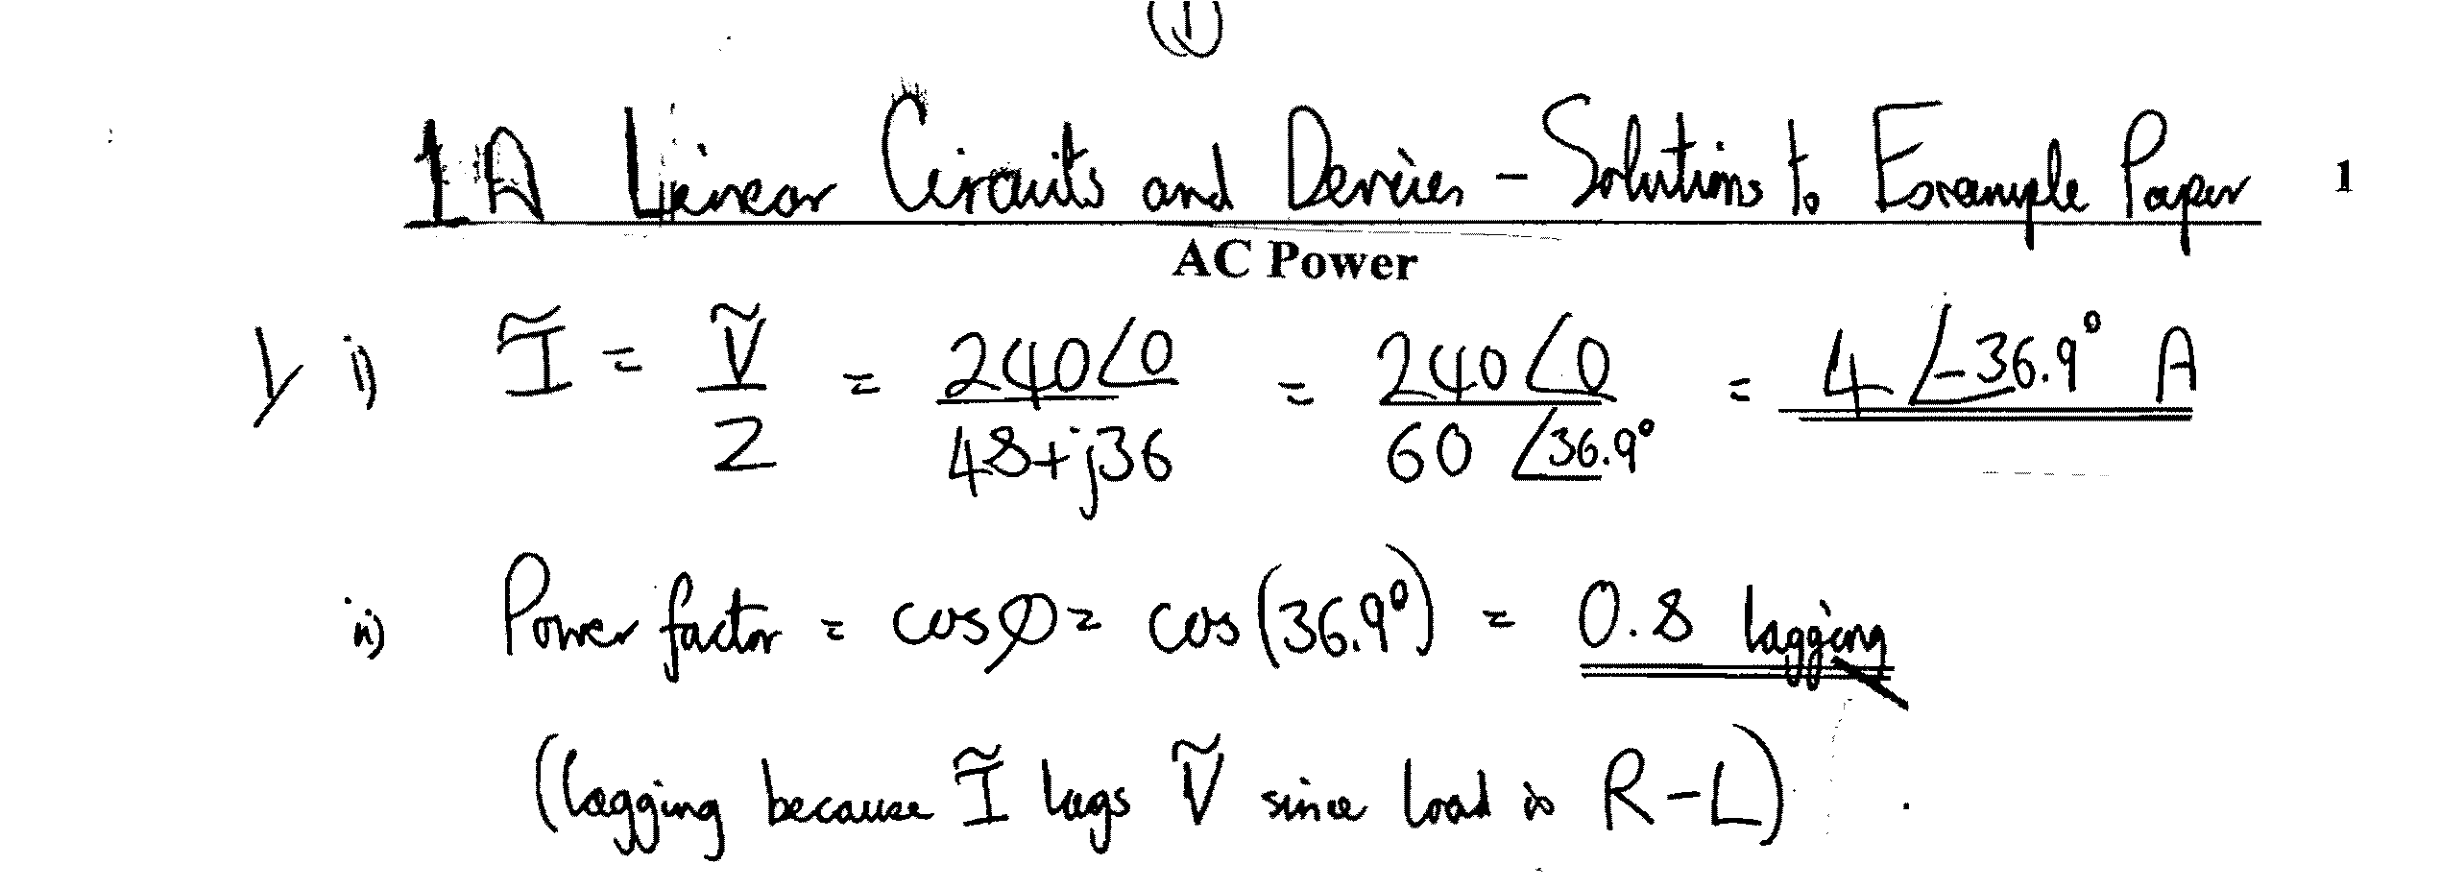 (1)
1A Linear Circuits and Devices - Solutions to Example Paper 1
AC Power
1/ i) Ĩ = Ṽ/Z = 240∠0/48+j36 = 240∠0/60∠36.9° = 4∠-36.9° A
ii) Power factor = cosØ = cos(36.9°) = 0.8 lagging
(lagging because Ĩ lags Ṽ since load is R-L)